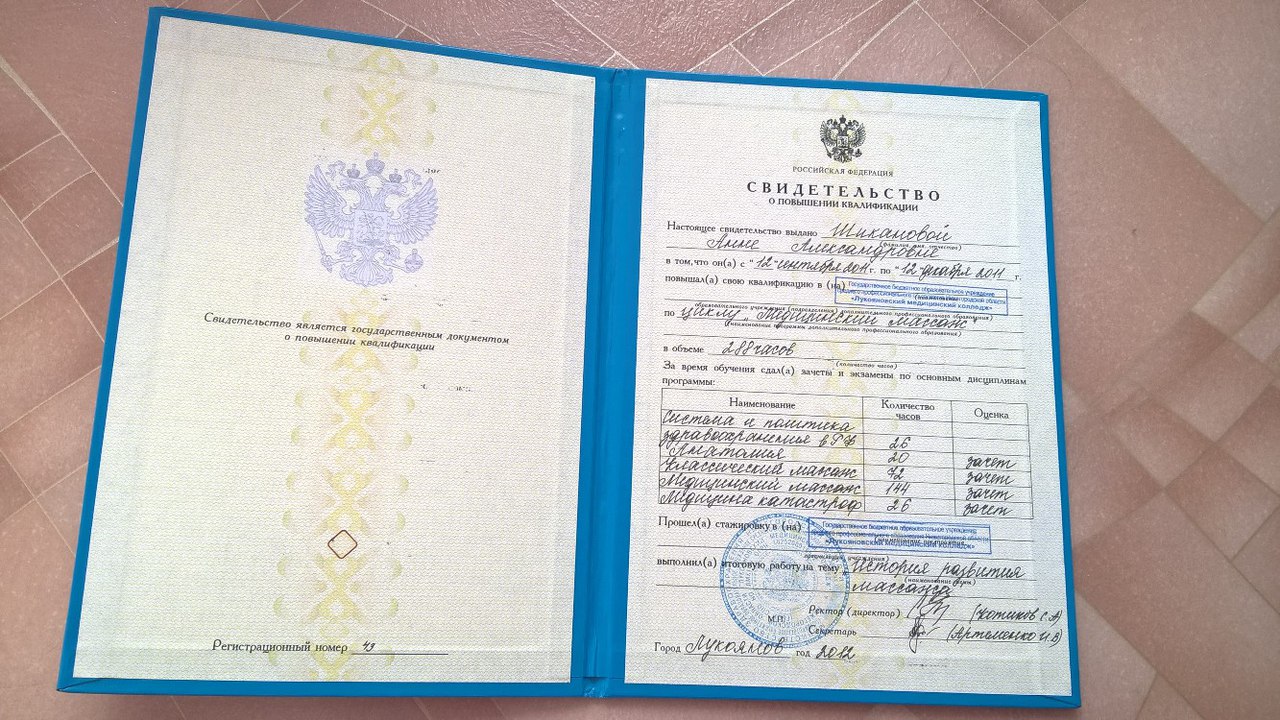 Свидетельство является государственным документом
о повышении квалификации
Регистрационный номер 43
РОССИЙСКАЯ ФЕДЕРАЦИЯ
СВИДЕТЕЛЬСТВО
О ПОВЫШЕНИИ КВАЛИФИКАЦИИ
Настоящее свидетельство выдано Шикановой
(фамилия, имя, отчество)
Анне Александровне
в том, что он(а) с "12-сентября 2011 г. по "12-декабря 2011 г.
повышал(а) свою квалификацию в (на)
Государственное бюджетное образовательное учреждение
среднего профессионального образования Нижегородской области
«Лукояновский медицинский колледж»
образовательного учреждения (подразделения) дополнительного профессионального образования)
по циклу „Медицинский массаж"
(наименование программы дополнительного профессионального образования)
в объеме 288 часов
(количество часов)
За время обучения сдал(а) зачеты и экзамены по основным дисциплинам
программы:
Наименование Количество часов Оценка
Система и политика
здравоохранения в РФ 26
Анатомия 20 зачет
Классический массаж 72 зачет
Медицинский массаж 144 зачет
Медицина катастроф 26 зачет
Прошел(а) стажировку в (на)
Государственное бюджетное образовательное учреждение
среднего профессионального образования Нижегородской области
«Лукояновский медицинский колледж»
выполнил(а) итоговую работу на тему История развития
(наименование темы)
массажа
Ректор (директор) (Котиков С.А)
М.П.
Секретарь (Артеменко И.В)
Город Лукоянов год 2012